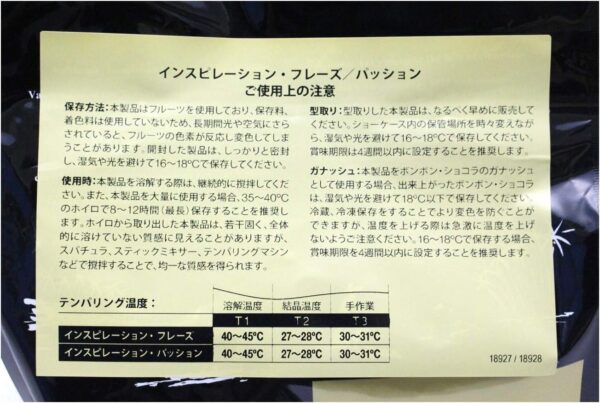 インスピレーション・フレーズ／パッション
ご使用上の注意
保存方法：本製品はフルーツを使用しており、保存料、
着色料は使用していないため、長期間光や空気にさら
されていると、フルーツの色素が反応し変色してしま
うことがあります。開封した製品は、しっかりと密封
し、湿気や光を避けて16～18℃で保存してください。
使用時：本製品を溶解する際は、継続的に撹拌してくだ
さい。また、本製品を大量に使用する場合、35～40℃
のホイロで8～12時間（最長）保存することを推奨し
ます。ホイロから取り出した本製品は、若干固く、全体
的に溶けていない質感に見えることがありますが、
スパチュラ、スティックミキサー、テンパリングマシン
などで撹拌することで、均一な質感を得られます。
型取り：型取りした本製品は、なるべく早めに販売して
ください。ショーケース内の保管場所を時々変えなが
ら、湿気や光を避けて16～18℃で保存してください。
賞味期限は4週間以内に設定することを推奨します。
ガナッシュ：本製品をボンボン・ショコラのガナッシュ
として使用する場合、出来上がったボンボン・ショコラ
は、湿気や光を避けて18℃以下で保存してください。
冷蔵、冷凍保存をすることでより変色を防ぐことが
できますが、温度を上げる際は急激に温度を上げ
ないようご注意ください。16～18℃で保存する場合、
賞味期限を4週間以内に設定することを推奨します。
テンパリング温度： 溶解温度 結晶温度 手作業
T1 T2 T3
インスピレーション・フレーズ 40～45℃ 27～28℃ 30～31℃
インスピレーション・パッション 40～45℃ 27～28℃ 30～31℃
18927 / 18928